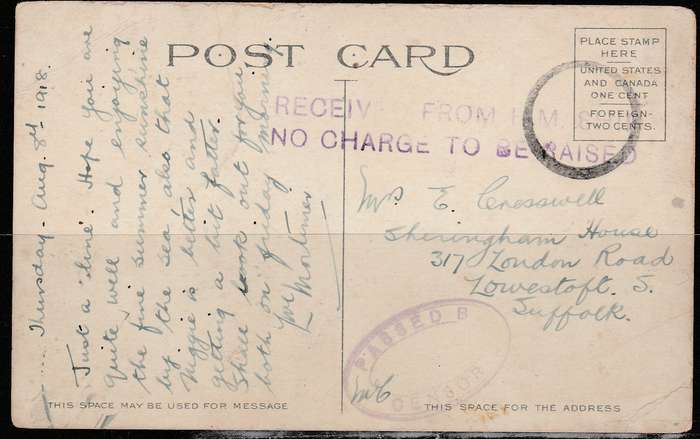 POST CARD
PLACE STAMP
HERE
UNITED STATES
AND CANADA
ONE CENT
FOREIGN-
TWO CENTS.
RECEIV FROM H.M. S
NO CHARGE TO BE RAISED
Thursday - Aug. 8th - 1918.
Just a 'line'. Hope you are
quite well and enjoying
the fine summer sunshine
by the sea, also that
is better and
getting a bit fatter.
Shall look out for you
both on Friday morning.
Mortimer
Mrs E. Cresswell
Sheringham House
317 London Road
Lowestoft. S.
Suffolk.
PASSED B
CENSOR
THIS SPACE MAY BE USED FOR MESSAGE
THIS SPACE FOR THE ADDRESS